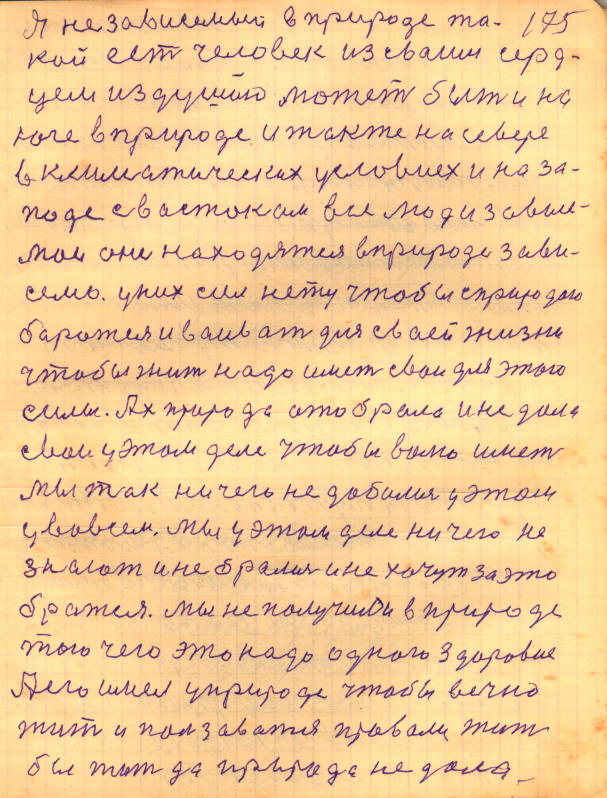 Я независемый в природе та- 175
кой ест человек из сваим серд-
цем из душою может быт и на
юге в природе и также на севере
в климатических условиех и на за-
поде с вастокам все люди завие-
мои они находятся в природе зави-
семо. у них сил нету чтобы с природаю
баротся и ваиват для сваей жизни
чтобы жит надо имет сваи для этого
силы. Ах природа отобрала и не дала
сваи у этом деле чтобы вамо имет
мы так ничего не добился у этом
у вовсем. мы у этом деле ничего не
знают и не брался и не хочут за это
братся. мы не получили в природе
того чего это надо одного здоровие
А его имел у природе чтобы вечно
жит и ползаватся провам жит
бы жит да природа не дала